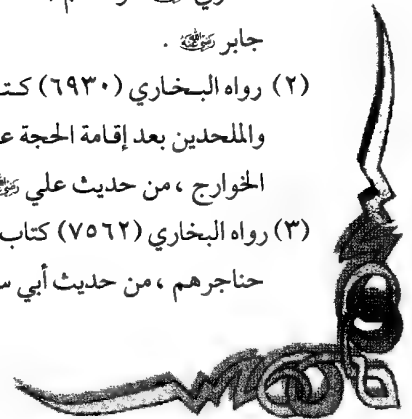 جابر ﵁ .
(٢) رواه البخاري (٦٩٣٠) كـتـ
والملحدين بعد إقامة الحجة عـ
الخوارج ، من حديث علي
(٣) رواه البخاري (٧٥٦٢) كتاب
حناجرهم ، من حديث أبي سـ